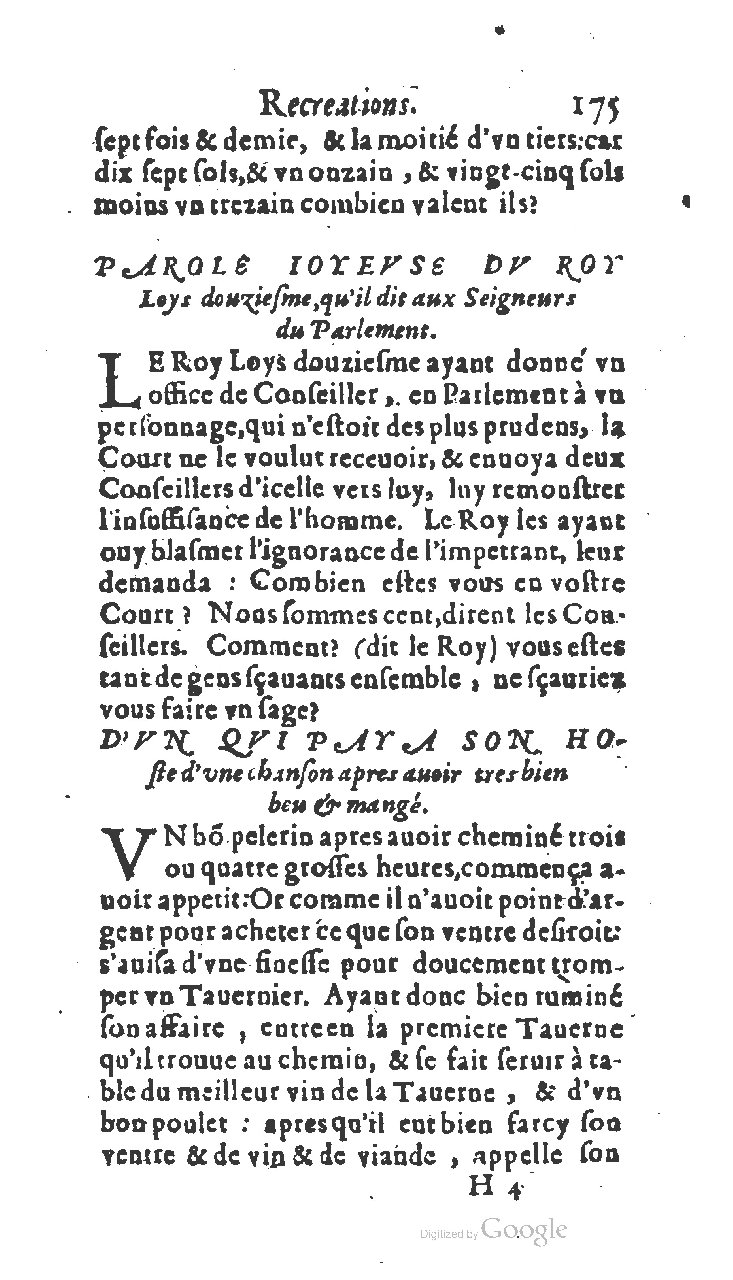 Recreations. 175
ſept fois & demie, & la moitié d'vn tiers: car
dix ſept ſols, & vn onzain, & vingt-cinq ſols
moins vn trezain combien valent ils?
PAROLE IOYEVSE DV ROY
Loys douzieſme, qu'il dit aux Seigneurs
du Parlement.
LE Roy Loys douzieſme ayant donné vn
office de Conſeiller, en Parlement à vn
perſonnage, qui n'eſtoit des plus prudens, la
Court ne le voulut receuoir, & enuoya deux
Conſeillers d'icelle vers luy, luy remonſtrer
l'inſuffiſance de l'homme. Le Roy les ayant
ouy blaſmer l'ignorance de l'impetrant, leur
demanda : Combien eſtes vous en voſtre
Court ? Nous ſommes cent, dirent les Con-
ſeillers. Comment? (dit le Roy) vous eſtes
tant de gens ſçauants enſemble, ne ſçauriez
vous faire vn ſage?
D'VN QVI PAYA SON HO-
ſte d'vne chanſon apres auoir tres bien
beu & mangé.
VN bõ pelerin apres auoir cheminé trois
ou quatre groſſes heures, commença a-
uoir appetit: Or comme il n'auoit point d'ar-
gent pour acheter ce que ſon ventre deſiroit:
s'auiſa d'vne fineſſe pour doucement trom-
per vn Tauernier. Ayant donc bien ruminé
ſon affaire, entre en la premiere Tauerne
qu'il trouue au chemin, & ſe fait ſeruir à ta-
ble du meilleur vin de la Tauerne, & d'vn
bon poulet : apres qu'il eut bien farcy ſon
ventre & de vin & de viande, appelle ſon
H 4
Digitized by Google